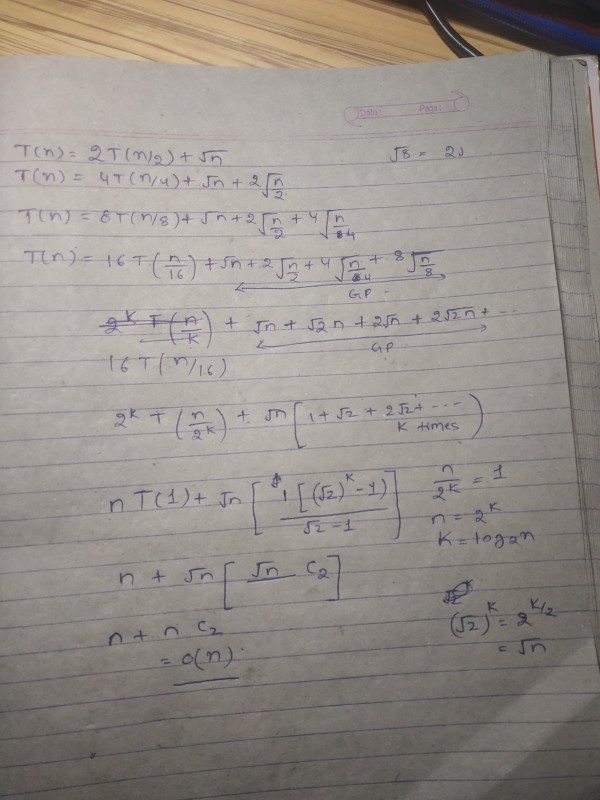 Date: Page:
T(n) = 2T(n/2) + √n √8 = 2√
T(n) = 4T(n/4) + √n + 2√(n/2)
T(n) = 8T(n/8) + √n + 2√(n/2) + 4√(n/4)
T(n) = 16T(n/16) + √n + 2√(n/2) + 4√(n/4) + 8√(n/8)
GP
2^K T(n/K) + √n + √2n + 2√n + 2√2n + ...
GP
16T(n/16)
2^K T(n/2^K) + √n [1 + √2 + 2√2 + ---- K times]
nT(1) + √n [1[(√2)^K - 1) / √2 - 1] n/2^K = 1
n = 2^K
K = log2n
n + √n [√n C2]
(√2)^K = 2^K/2
= √n
n + n C2
= O(n)